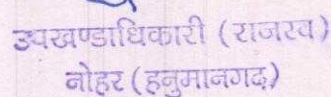 उपखण्डाधिकारी (राजस्व)
नोहर (हनुमानगढ़)